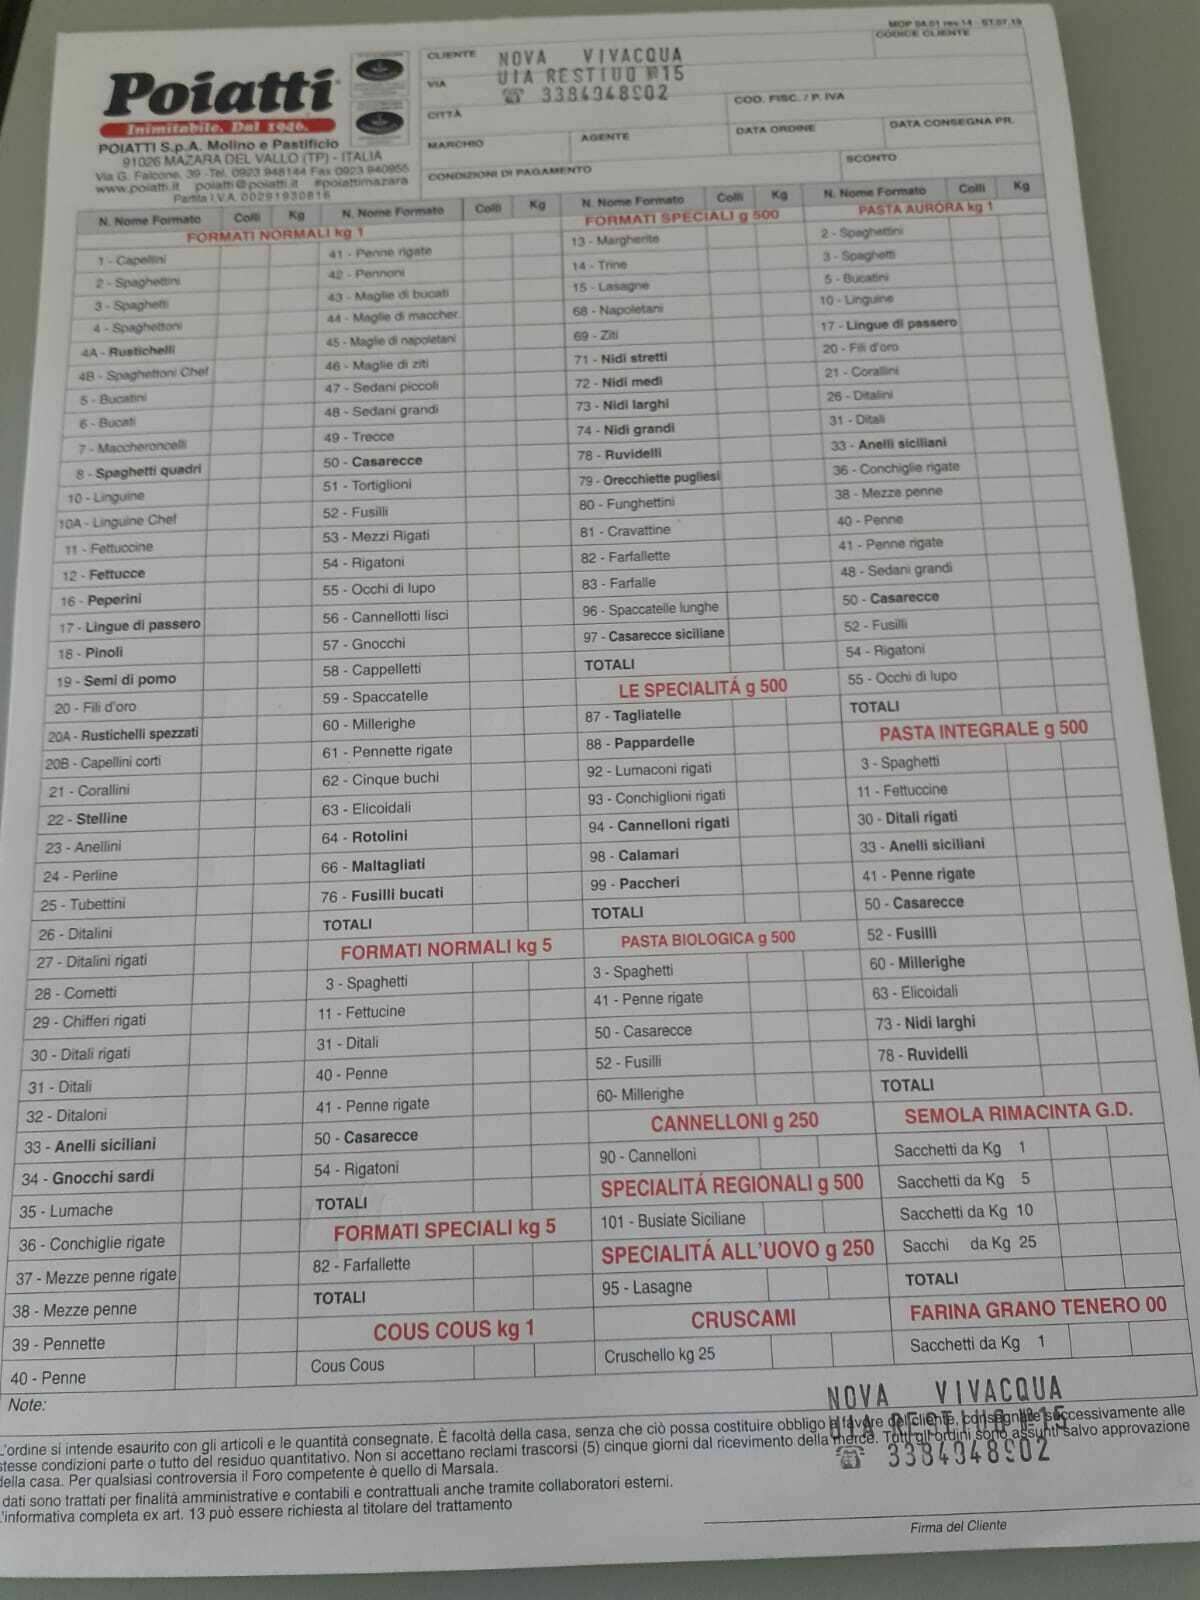 MOP 04.01 rev.14 - ST.07.19
Poiatti
Inimitabile. Dal 1946.
POIATTI S.p.A. Molino e Pastificio
91026 MAZARA DEL VALLO (TP) - ITALIA
Via G. Falcone, 39 -Tel. 0923 948144 Fax 0923 940955
www.poiatti.it poiatti@poiatti.it #poiattimazara
Partita I.V.A. 00291930816
CLIENTE
NOVA VIVACQUA
CODICE CLIENTE
VIA
VIA RESTIVO N°15
☎ 3384948902
CITTÀ
COD. FISC. / P. IVA
MARCHIO
AGENTE
DATA ORDINE
DATA CONSEGNA PR.
CONDIZIONI DI PAGAMENTO
SCONTO
N. Nome Formato Colli Kg
FORMATI NORMALI kg 1
1 - Capellini
2 - Spaghettini
3 - Spaghetti
4 - Spaghettoni
4A - Rustichelli
4B - Spaghettoni Chef
5 - Bucatini
6 - Bucati
7 - Maccheroncelli
8 - Spaghetti quadri
10 - Linguine
10A - Linguine Chef
11 - Fettuccine
12 - Fettucce
16 - Peperini
17 - Lingue di passero
18 - Pinoli
19 - Semi di pomo
20 - Fili d'oro
20A - Rustichelli spezzati
20B - Capellini corti
21 - Corallini
22 - Stelline
23 - Anellini
24 - Perline
25 - Tubettini
26 - Ditalini
27 - Ditalini rigati
28 - Cornetti
29 - Chifferi rigati
30 - Ditali rigati
31 - Ditali
32 - Ditaloni
33 - Anelli siciliani
34 - Gnocchi sardi
35 - Lumache
36 - Conchiglie rigate
37 - Mezze penne rigate
38 - Mezze penne
39 - Pennette
40 - Penne
N. Nome Formato Colli Kg
41 - Penne rigate
42 - Pennoni
43 - Maglie di bucati
44 - Maglie di maccher.
45 - Maglie di napoletani
46 - Maglie di ziti
47 - Sedani piccoli
48 - Sedani grandi
49 - Trecce
50 - Casarecce
51 - Tortiglioni
52 - Fusilli
53 - Mezzi Rigati
54 - Rigatoni
55 - Occhi di lupo
56 - Cannellotti lisci
57 - Gnocchi
58 - Cappelletti
59 - Spaccatelle
60 - Millerighe
61 - Pennette rigate
62 - Cinque buchi
63 - Elicoidali
64 - Rotolini
66 - Maltagliati
76 - Fusilli bucati
TOTALI
FORMATI NORMALI kg 5
3 - Spaghetti
11 - Fettucine
31 - Ditali
40 - Penne
41 - Penne rigate
50 - Casarecce
54 - Rigatoni
TOTALI
FORMATI SPECIALI kg 5
82 - Farfallette
TOTALI
COUS COUS kg 1
Cous Cous
N. Nome Formato Colli Kg
FORMATI SPECIALI g 500
13 - Margherite
14 - Trine
15 - Lasagne
68 - Napoletani
69 - Ziti
71 - Nidi stretti
72 - Nidi medi
73 - Nidi larghi
74 - Nidi grandi
78 - Ruvidelli
79 - Orecchiette pugliesi
80 - Funghettini
81 - Cravattine
82 - Farfallette
83 - Farfalle
96 - Spaccatelle lunghe
97 - Casarecce siciliane
TOTALI
LE SPECIALITÁ g 500
87 - Tagliatelle
88 - Pappardelle
92 - Lumaconi rigati
93 - Conchiglioni rigati
94 - Cannelloni rigati
98 - Calamari
99 - Paccheri
TOTALI
PASTA BIOLOGICA g 500
3 - Spaghetti
41 - Penne rigate
50 - Casarecce
52 - Fusilli
60- Millerighe
CANNELLONI g 250
90 - Cannelloni
SPECIALITÁ REGIONALI g 500
101 - Busiate Siciliane
SPECIALITÁ ALL'UOVO g 250
95 - Lasagne
CRUSCAMI
Cruschello kg 25
N. Nome Formato Colli Kg
PASTA AURORA kg 1
2 - Spaghettini
3 - Spaghetti
5 - Bucatini
10 - Linguine
17 - Lingue di passero
20 - Fili d'oro
21 - Corallini
26 - Ditalini
31 - Ditali
33 - Anelli siciliani
36 - Conchiglie rigate
38 - Mezze penne
40 - Penne
41 - Penne rigate
48 - Sedani grandi
50 - Casarecce
52 - Fusilli
54 - Rigatoni
55 - Occhi di lupo
TOTALI
PASTA INTEGRALE g 500
3 - Spaghetti
11 - Fettuccine
30 - Ditali rigati
33 - Anelli siciliani
41 - Penne rigate
50 - Casarecce
52 - Fusilli
60 - Millerighe
63 - Elicoidali
73 - Nidi larghi
78 - Ruvidelli
TOTALI
SEMOLA RIMACINTA G.D.
Sacchetti da Kg 1
Sacchetti da Kg 5
Sacchetti da Kg 10
Sacchi da Kg 25
TOTALI
FARINA GRANO TENERO 00
Sacchetti da Kg 1
Note:
NOVA VIVACQUA
VIA RESTIVO N°15
☎ 3384948902
L'ordine si intende esaurito con gli articoli e le quantità consegnate. È facoltà della casa, senza che ciò possa costituire obbligo a favore del cliente, consegnate successivamente alle
stesse condizioni parte o tutto del residuo quantitativo. Non si accettano reclami trascorsi (5) cinque giorni dal ricevimento della merce. Tutti gli ordini sono assunti salvo approvazione
della casa. Per qualsiasi controversia il Foro competente è quello di Marsala.
dati sono trattati per finalità amministrative e contabili e contrattuali anche tramite collaboratori esterni.
L'informativa completa ex art. 13 può essere richiesta al titolare del trattamento
Firma del Cliente